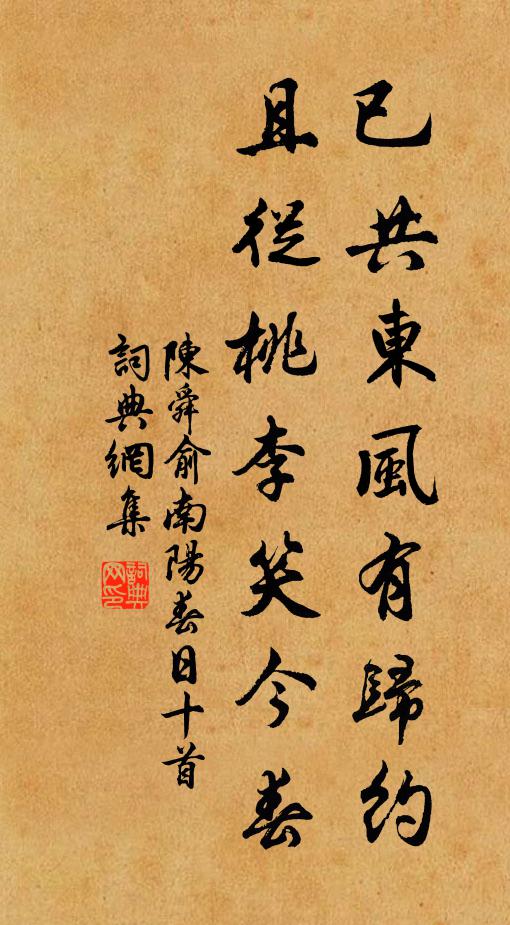 已共東風有歸約
且從桃李笑今春
陳舜俞南陽春日十首
詞典網集
詞典网印